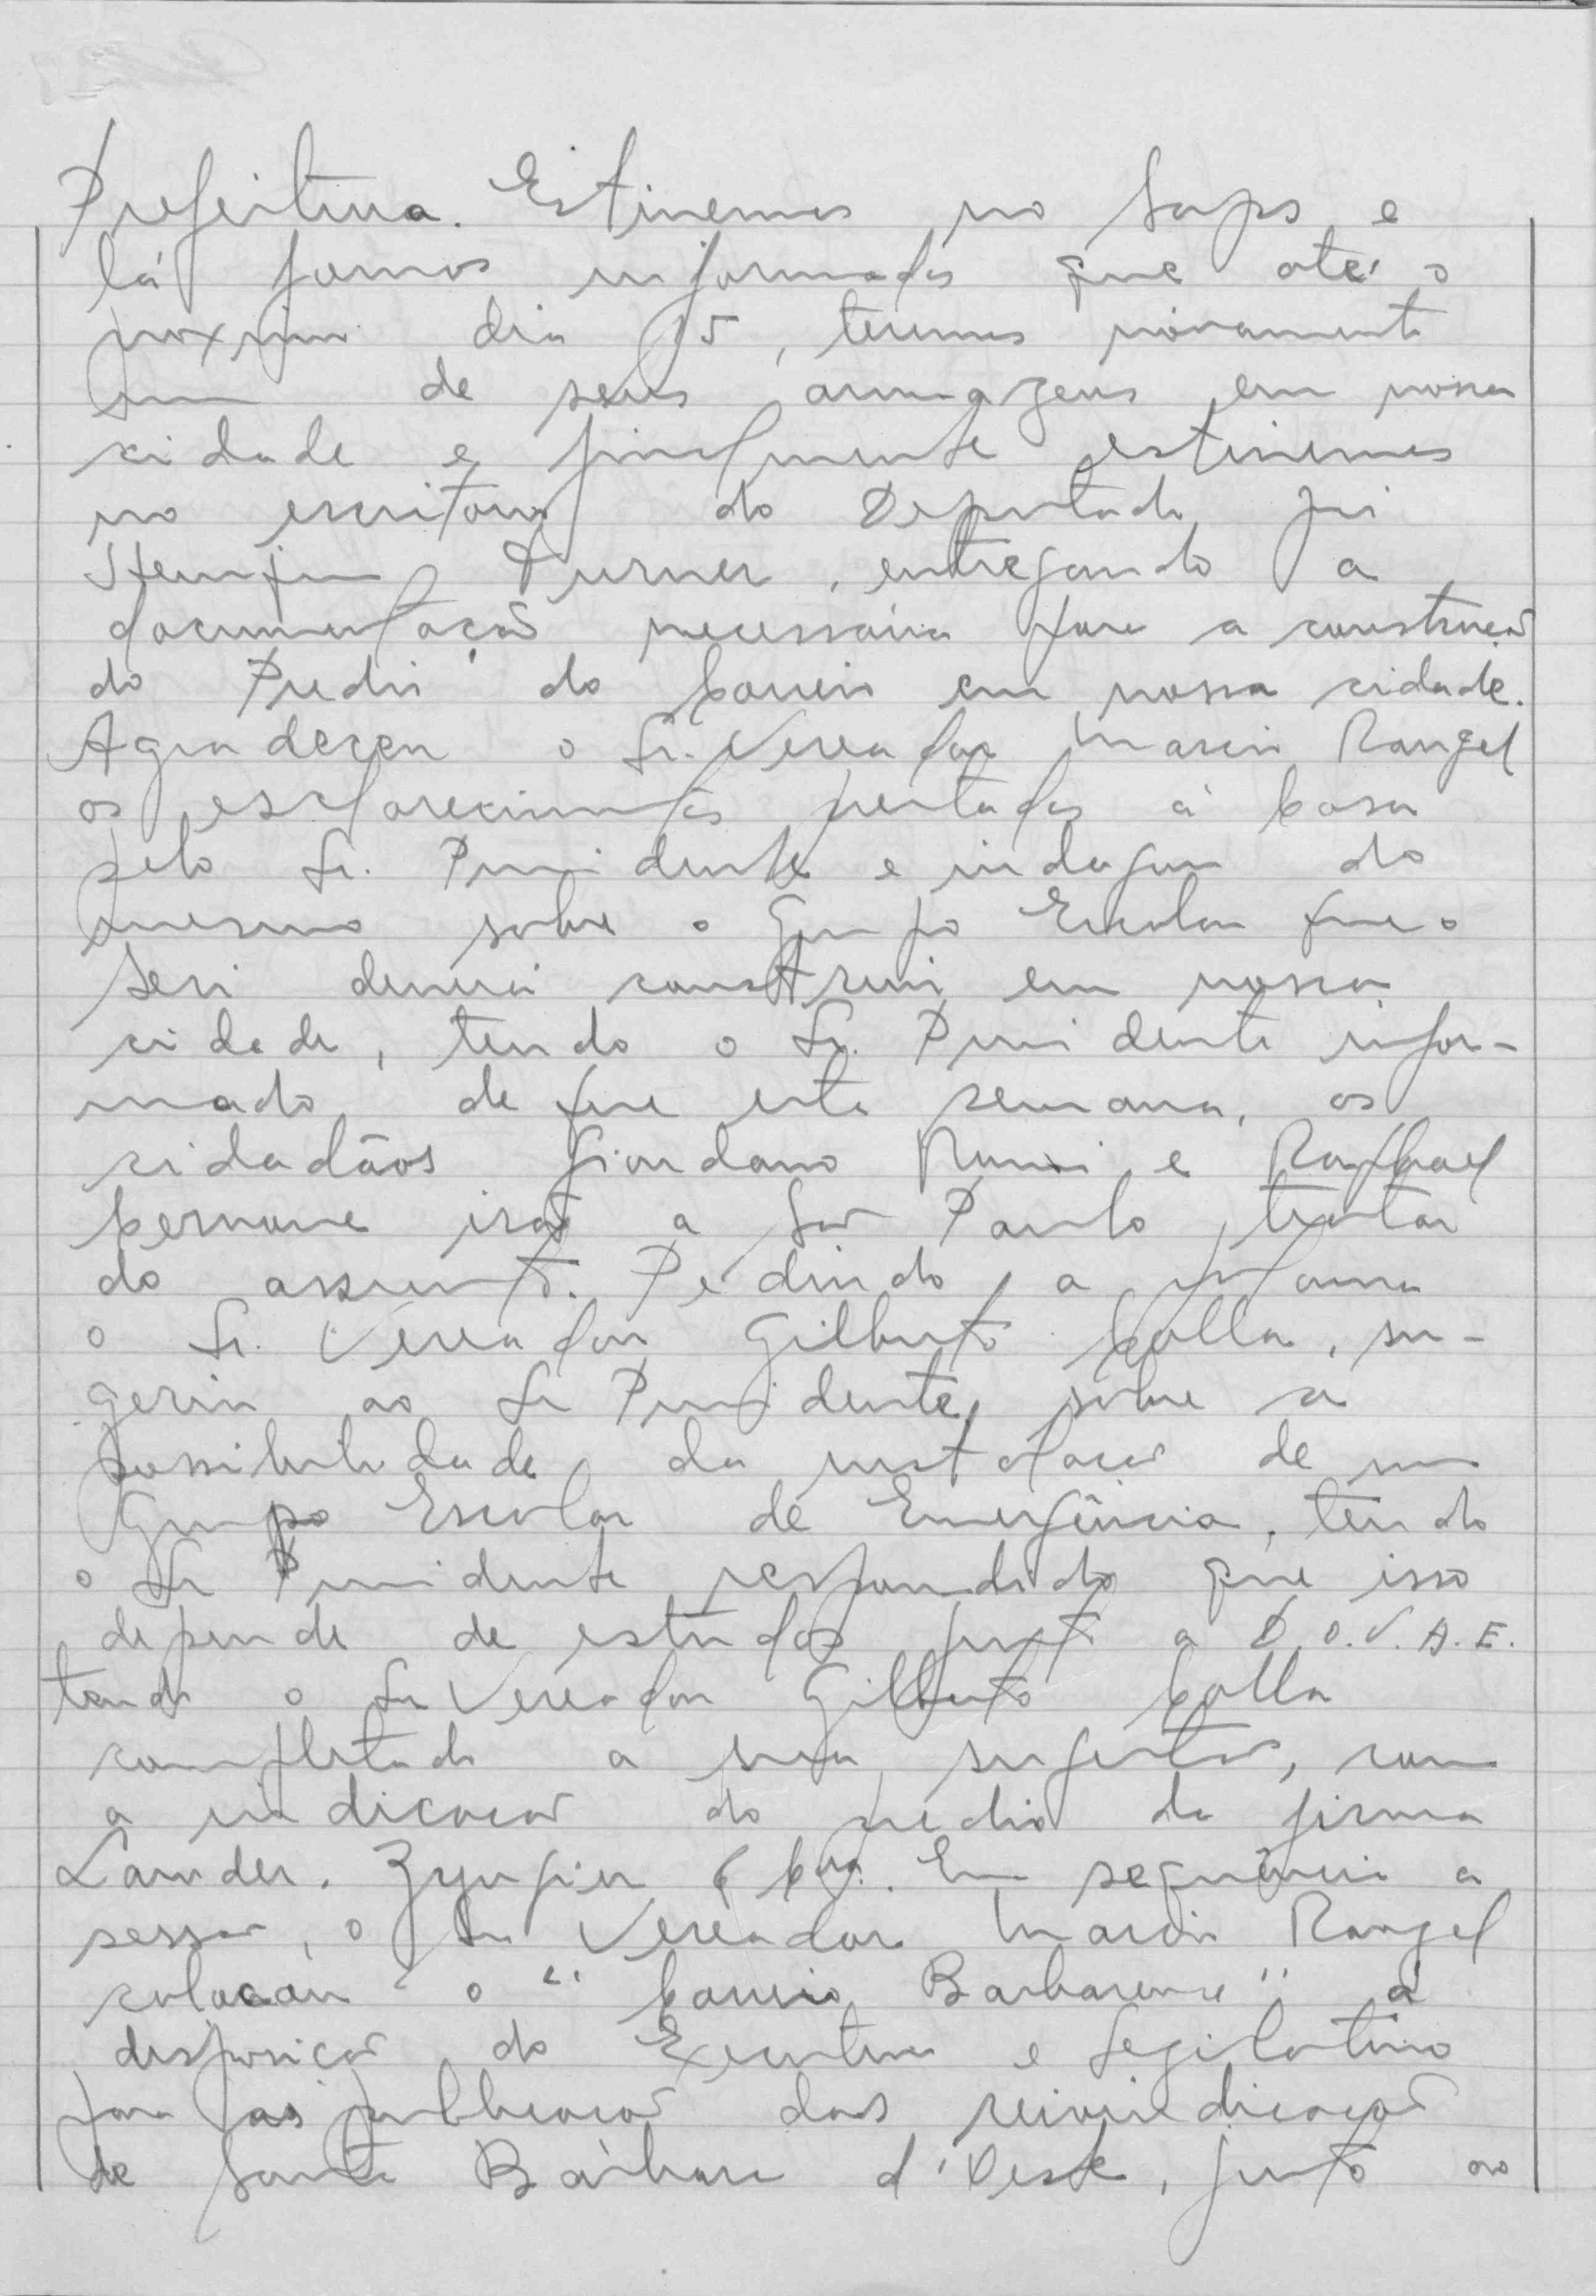 Prefeitura. Estivemos no Saps e
lá fomos informados que até o
proximo dia 15, teremos novamente
um de seus armazens em nossa
cidade e finalmente estivemos
no escritorio do Deputado
Turner, entregando a
documentação necessária para a construção
do Predio do Correio em nossa cidade.
Agradeceu o Sr. Vereador Marcio Rangel
os esclarecimentos prestados á Casa
pelo Sr. Presidente e indagou do
mesmo sobre o Grupo Escolar que o
Sesi deverá construir em nossa
cidade, tendo o Sr. Presidente infor-
mado de que esta semana, os
cidadãos Giordano Romi e Raphael
Cervone irão a São Paulo, tratar
do assunto. Pedindo a palavra
o Sr. Vereador Gilberto Colla, su-
geriu ao Sr Presidente, sobre a
possibilidade da instalação de um
Grupo Escolar de Emergência, tendo
o Sr Presidente respondido que isso
depende de estudos junto a D.O.V.A.E.
tendo o Sr Vereador Gilberto Colla
completado a sua sugestão, com
a indicação do predio da firma
Lander. & Cia. Em sequência a
sessão, o Sr Vereador Marcio Rangel
colocou o "Correio Barbarense" á
disposição do Executivo e Legislativo
para as publicação das reivindicação
de Santa Bárbara d'Oeste, junto ao